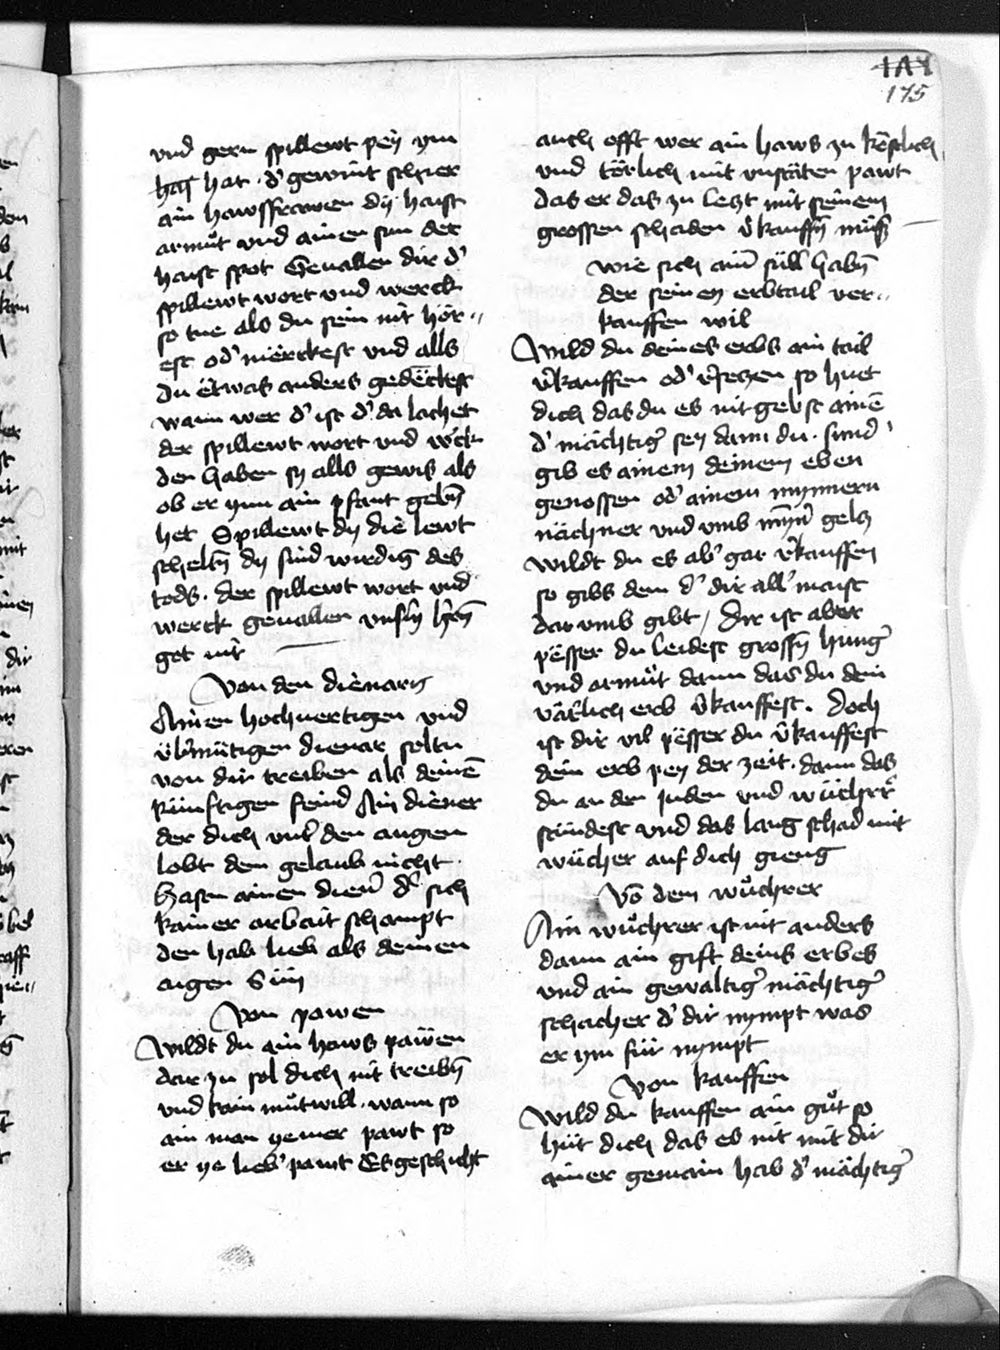 175
vnd gern spillewt peÿ ym
haß hat · d' gewint schier
ain hawssfrawen dÿ haist
armüt vnd ainen sun der
haist spot Geuallen dir d'
spillewt wort vnd werck
so tue als du sein nit hör„
est od' mërckest vnd alls
du ëtwas anders gedëckest
wann wer d' ist d' da lachet
der spillewt wort vnd w'ck
den haben sy alls gewis als
ob er ynn ain pfant gebñ
het Spillewt dy die lewt
scheltñ dy sind wirdig des
tods · der spillewt wort vnd
werck geuallen vnsm̃ hr̃ñ
got nit
Von den dienarñ
Ainen hochuertigen vnd
übermütigen dienar soltu
von dir treiben als deinē
künftigen feind Ain diener
der dich vnt' den augen
lobt dem gelaub nicht
Hastu ainen dien' d' sich
kainer arbait schampt
den hab lieb als deinen
aigen Sün
Von pawen
Wildt du ain haws päwen
dar zu sol dich nit treibñ
vnd kain mütwill · wann so
ain man yemer pawt so
er ye lieb' pawt Es geschicht
auch offt wer ain haws zu köstlich
vnd törlich mit vnstäten pawt
das er das zu letzt mit seinem
grossen schaden v'kauffñ müß
wie sich ain' süll habñ
der seinen erbtail ver„
kauffen wil
Wild du deines erbs ain tail
v'kauffen od' v'setzen so huet
dich das du es nit gebst ainē
d' mächtig' sey dann du · sund'
gib es ainem deinem eben
genossen od' ainem mynnern
nächner vnd vmb mỹn' gelt
wildt du es ab' gar v'kauffen
so gibs dem d' dir all' maist
dar vmb gibt / Dir ist aber
pësser du leidest grossñ hung'
vnd armüt dann das du dein
väterlich erb v'kauffest · Doch
ist dir vil pësser du v'kauffest
dein erb pey der zeit · dann das
du an den Juden vnd wüchrer
stündest vnd das lang schad mit
wücher auf dich gieng
Võ dem wuchrer
Ain wuchrer ist nit anders
dann ain gift deins erbes
vnd ain gewaltig' mächtig'
schacher d' dir nympt was
er ym für nympt
Von kauffen
Wild du kauffen ain güt so
hüt dich das es nit mit dir
ainer gemain hab d' mächtig'